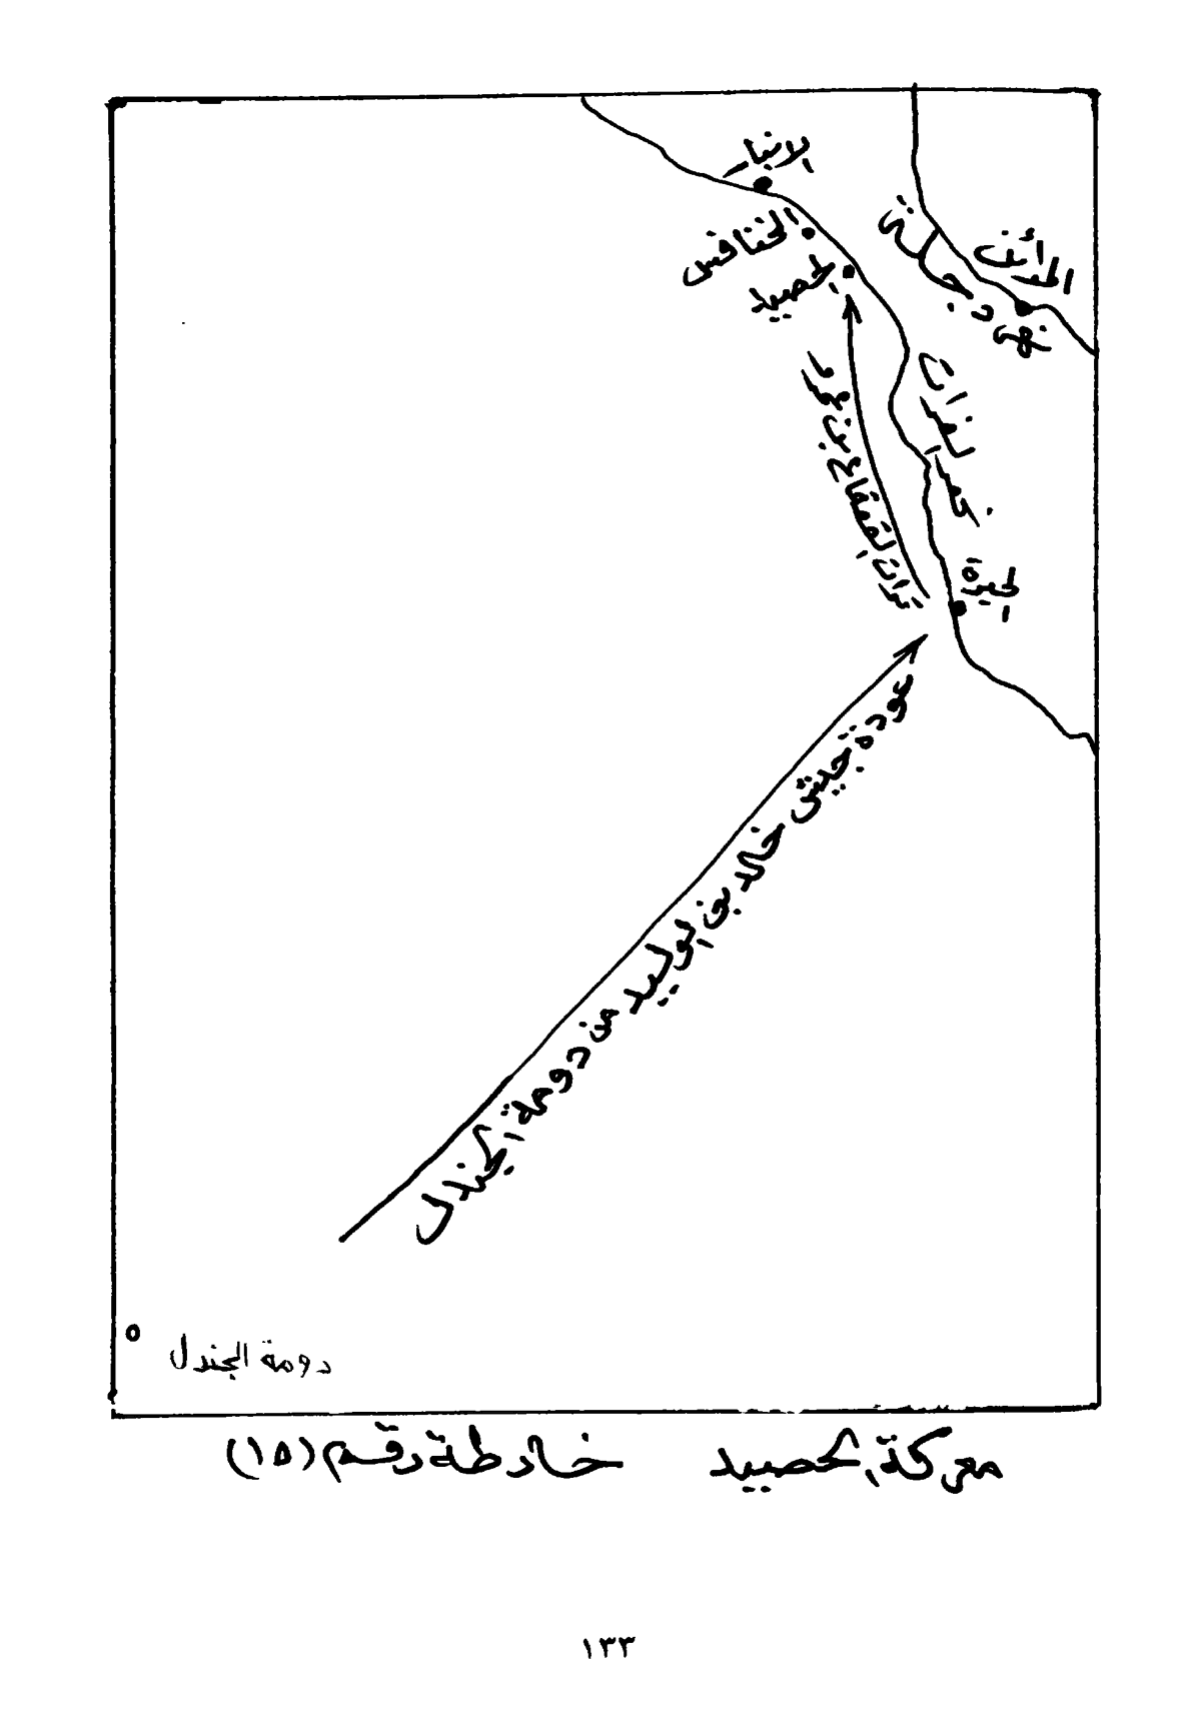 الانبار
الخنافس
الحصيد
المدائن
نهر دجلة
نهر الفرات
قوات القعقاع بن عمرو
الحيرة
عودة جيش خالد بن الوليد من دومة الجندل
دومة الجندل
معركة الحصيد خارطة رقم (١٥)
١٣٣